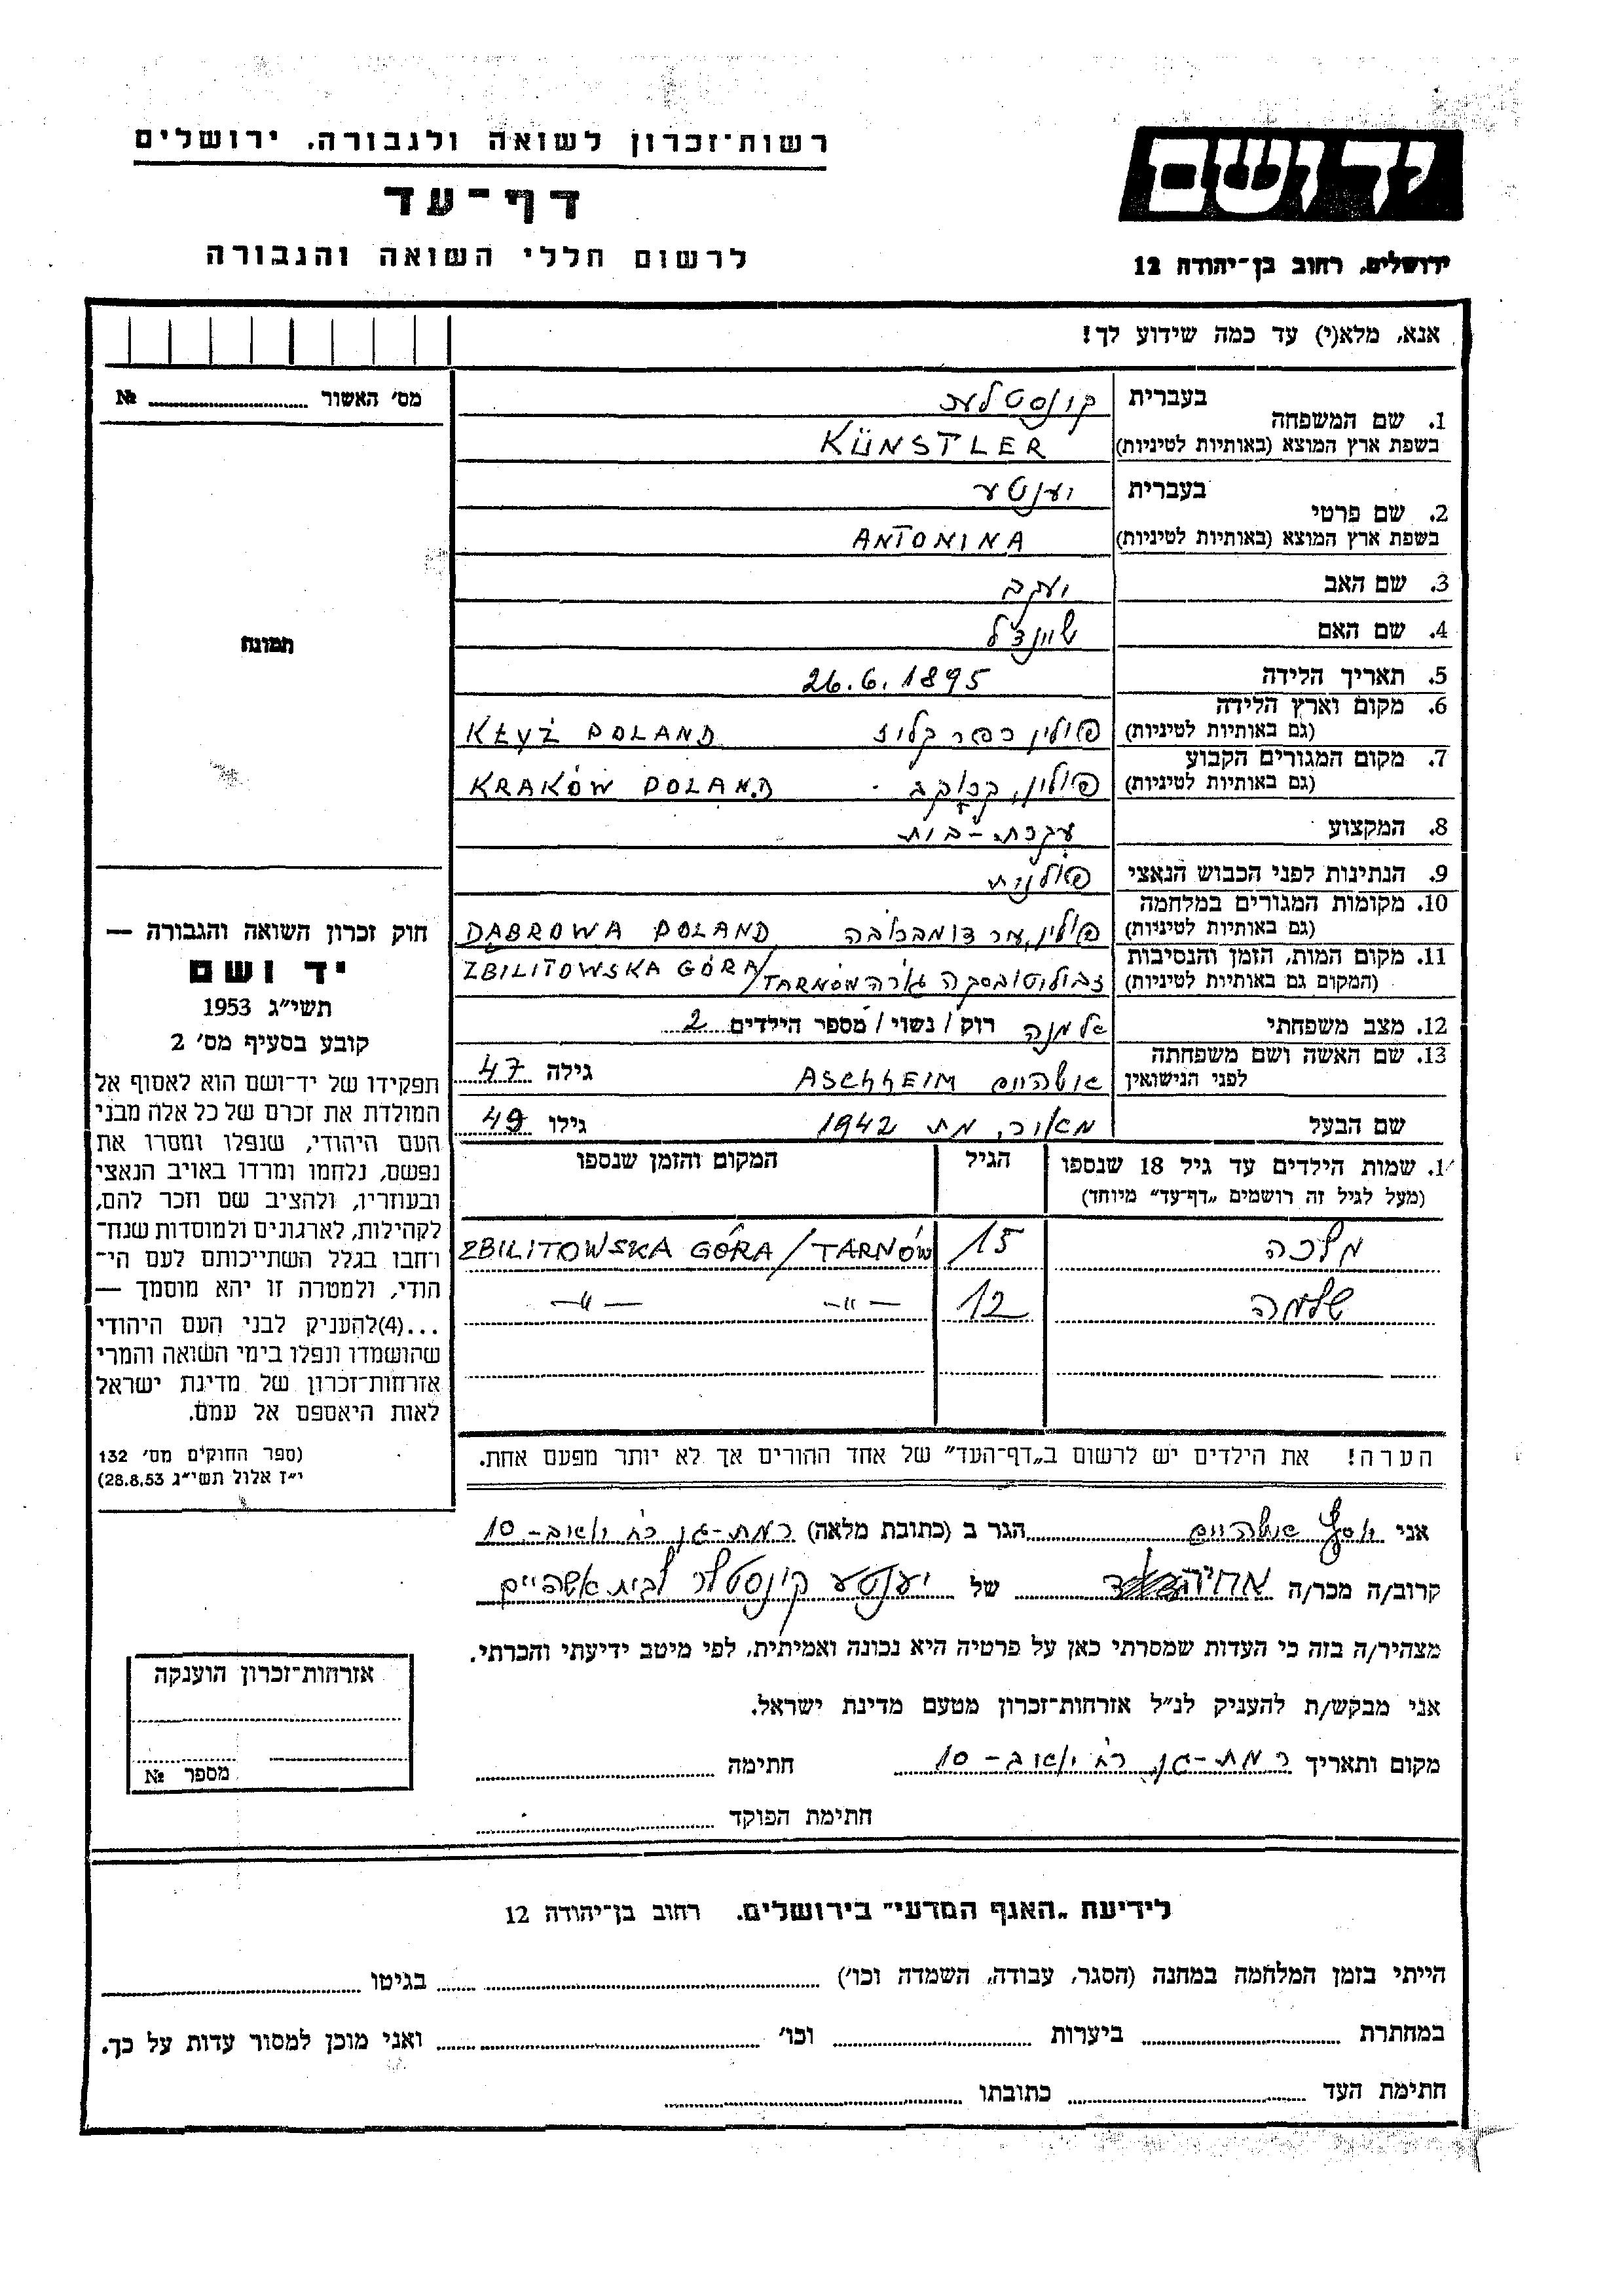 רשות־זכרון לשואה ולגבורה. ירושלים
דף־עד
לרשום חללי השואה והגבורה
יד ושם
ירושלים, רחוב בן־יהודה 12
אנא, מלא(י) עד כמה שידוע לך!
מס׳ האשור № 
תמונה
1. שם המשפחה
בעברית קונסטלער
בשפת ארץ המוצא (באותיות לטיניות) KÜNSTLER
2. שם פרטי
בעברית יענטע
בשפת ארץ המוצא (באותיות לטיניות) ANTONINA
3. שם האב יעקב
4. שם האם שיינדל
5. תאריך הלידה 26.6.1895
6. מקום וארץ הלידה
(גם באותיות לטיניות) פולין כפר קליז KŁYŻ POLAND
7. מקום המגורים הקבוע
(גם באותיות לטיניות) פולין, קרקוב KRAKÓW POLAND
8. המקצוע עקרת-בית
9. הנתינות לפני הכבוש הנאצי פולנית
10. מקומות המגורים במלחמה
(גם באותיות לטיניות) פולין, עיר דומברובה DĄBROWA POLAND
11. מקום המות, הזמן והנסיבות
(המקום גם באותיות לטיניות) זבוליטובסקה גורה ZBILITOWSKA GÓRA/TARNÓW
12. מצב משפחתי אלמנה רוק/ נשוי/ מספר הילדים 2
13. שם האשה ושם משפחתה
לפני הנישואין אשהיים ASCHHEIM גילה 47
שם הבעל מאיר, מת 1942 גילו 49
שמות הילדים עד גיל 18 שנספו
(מעל לגיל זה רושמים „דף־עד״ מיוחד)
הגיל
המקום והזמן שנספו
מלכה 15 ZBILITOWSKA GÓRA/TARNÓW
שלמה 12 —״— —״—
הערה! את הילדים יש לרשום ב„דף־העד״ של אחד ההורים אך לא יותר מפעם אחת.
חוק זכרון השואה והגבורה —
יד ושם
תשי״ג 1953
קובע בסעיף מס׳ 2
תפקידו של יד־ושם הוא לאסוף אל
המולדת את זכרם של כל אלה מבני
העם היהודי, שנפלו ומסרו את
נפשם, נלחמו ומרדו באויב הנאצי
ובעוזריו, ולהציב שם וזכר להם,
לקהילות, לארגונים ולמוסדות שנח־
רחבו בגלל השתייכותם לעם הי־
הודי, ולמטרה זו יהא מוסמך —
...(4)להעניק לבני העם היהודי
שהושמדו ונפלו בימי השואה והמרי
אזרחות־זכרון של מדינת ישראל
לאות היאספם אל עמם.
(ספר החוקים מס׳ 132
י״ז אלול תשי״ג 28.8.53)
אני יוסף אשהיים הגר ב (כתובת מלאה) רמת-גן רח׳ יואב-10
קרוב/ה מכר/ה אחיה של יענטע קונסטלר לבית אשהיים
מצהיר/ה בזה כי העדות שמסרתי כאן על פרטיה היא נכונה ואמיתית, לפי מיטב ידיעתי והכרתי.
אני מבקש/ת להעניק לנ״ל אזרחות־זכרון מטעם מדינת ישראל.
מקום ותאריך רמת-גן, רח׳ יואב-10 חתימה
חתימת הפוקד
אזרחות־זכרון הוענקה
מספר №
לידיעת „האגף המדעי״ בירושלים. רחוב בן־יהודה 12
הייתי בזמן המלחמה במחנה (הסגר, עבודה, השמדה וכו׳) בגיטו
במחתרת ביערות וכו׳ ואני מוכן למסור עדות על כך.
חתימת העד כתובתו